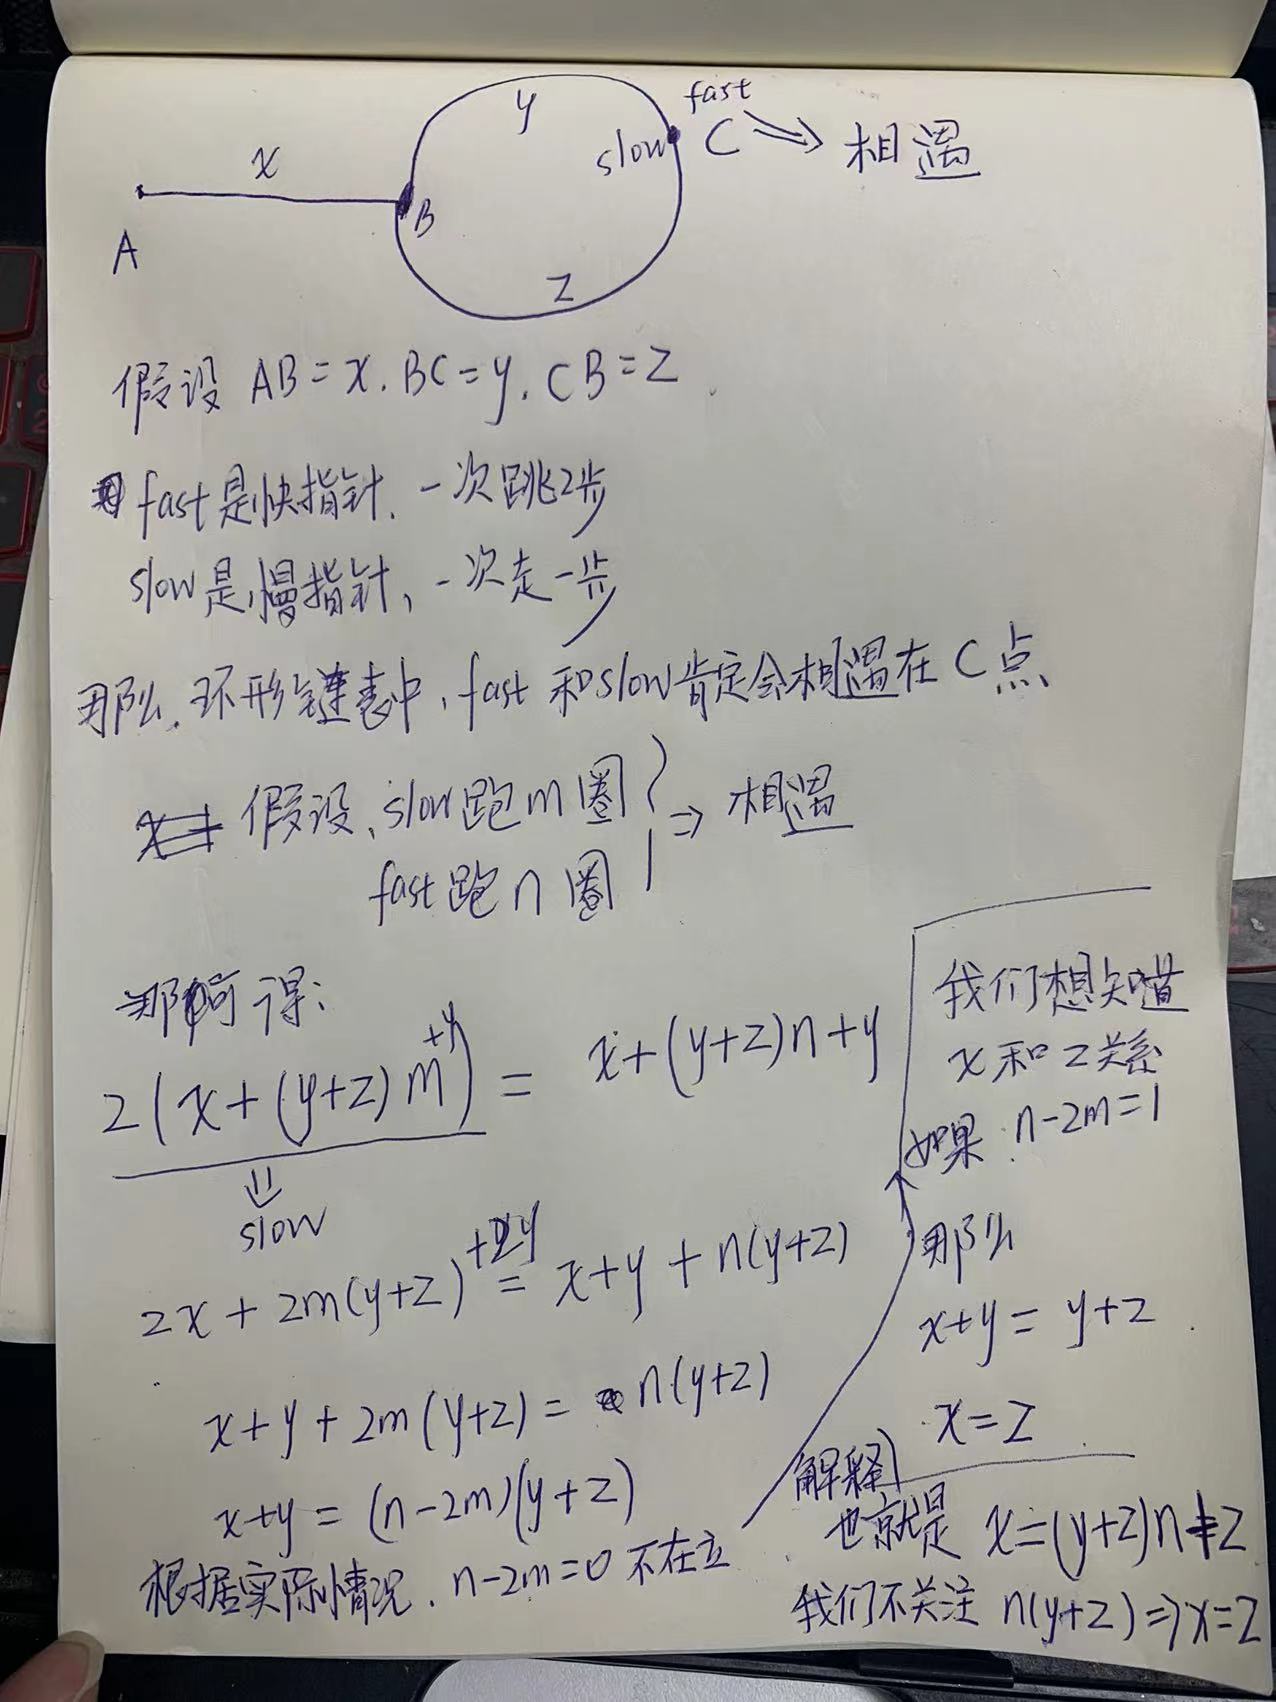 x
y
fast
slow C => 相遇
A
B
z
假设 AB=x. BC=y. CB=z
fast是快指针. 一次跳2步
slow是慢指针, 一次走一步
那么. 环形链表中, fast 和slow肯定会相遇在C点
假设、slow跑m圈
fast跑n圈
=> 相遇
那可得:
2(x+(y+z)m+y) = x+(y+z)n+y
slow
2x+2m(y+z)+2y = x+y+n(y+z)
x+y+2m(y+z) = n(y+z)
x+y = (n-2m)(y+z)
根据实际情况. n-2m=0 不在立
我们想知道
x和z关系
如果. n-2m=1
那么
x+y = y+z
x=z
解释
也就是 x=(y+z)n+z
我们不关注 n(y+z) => x=z